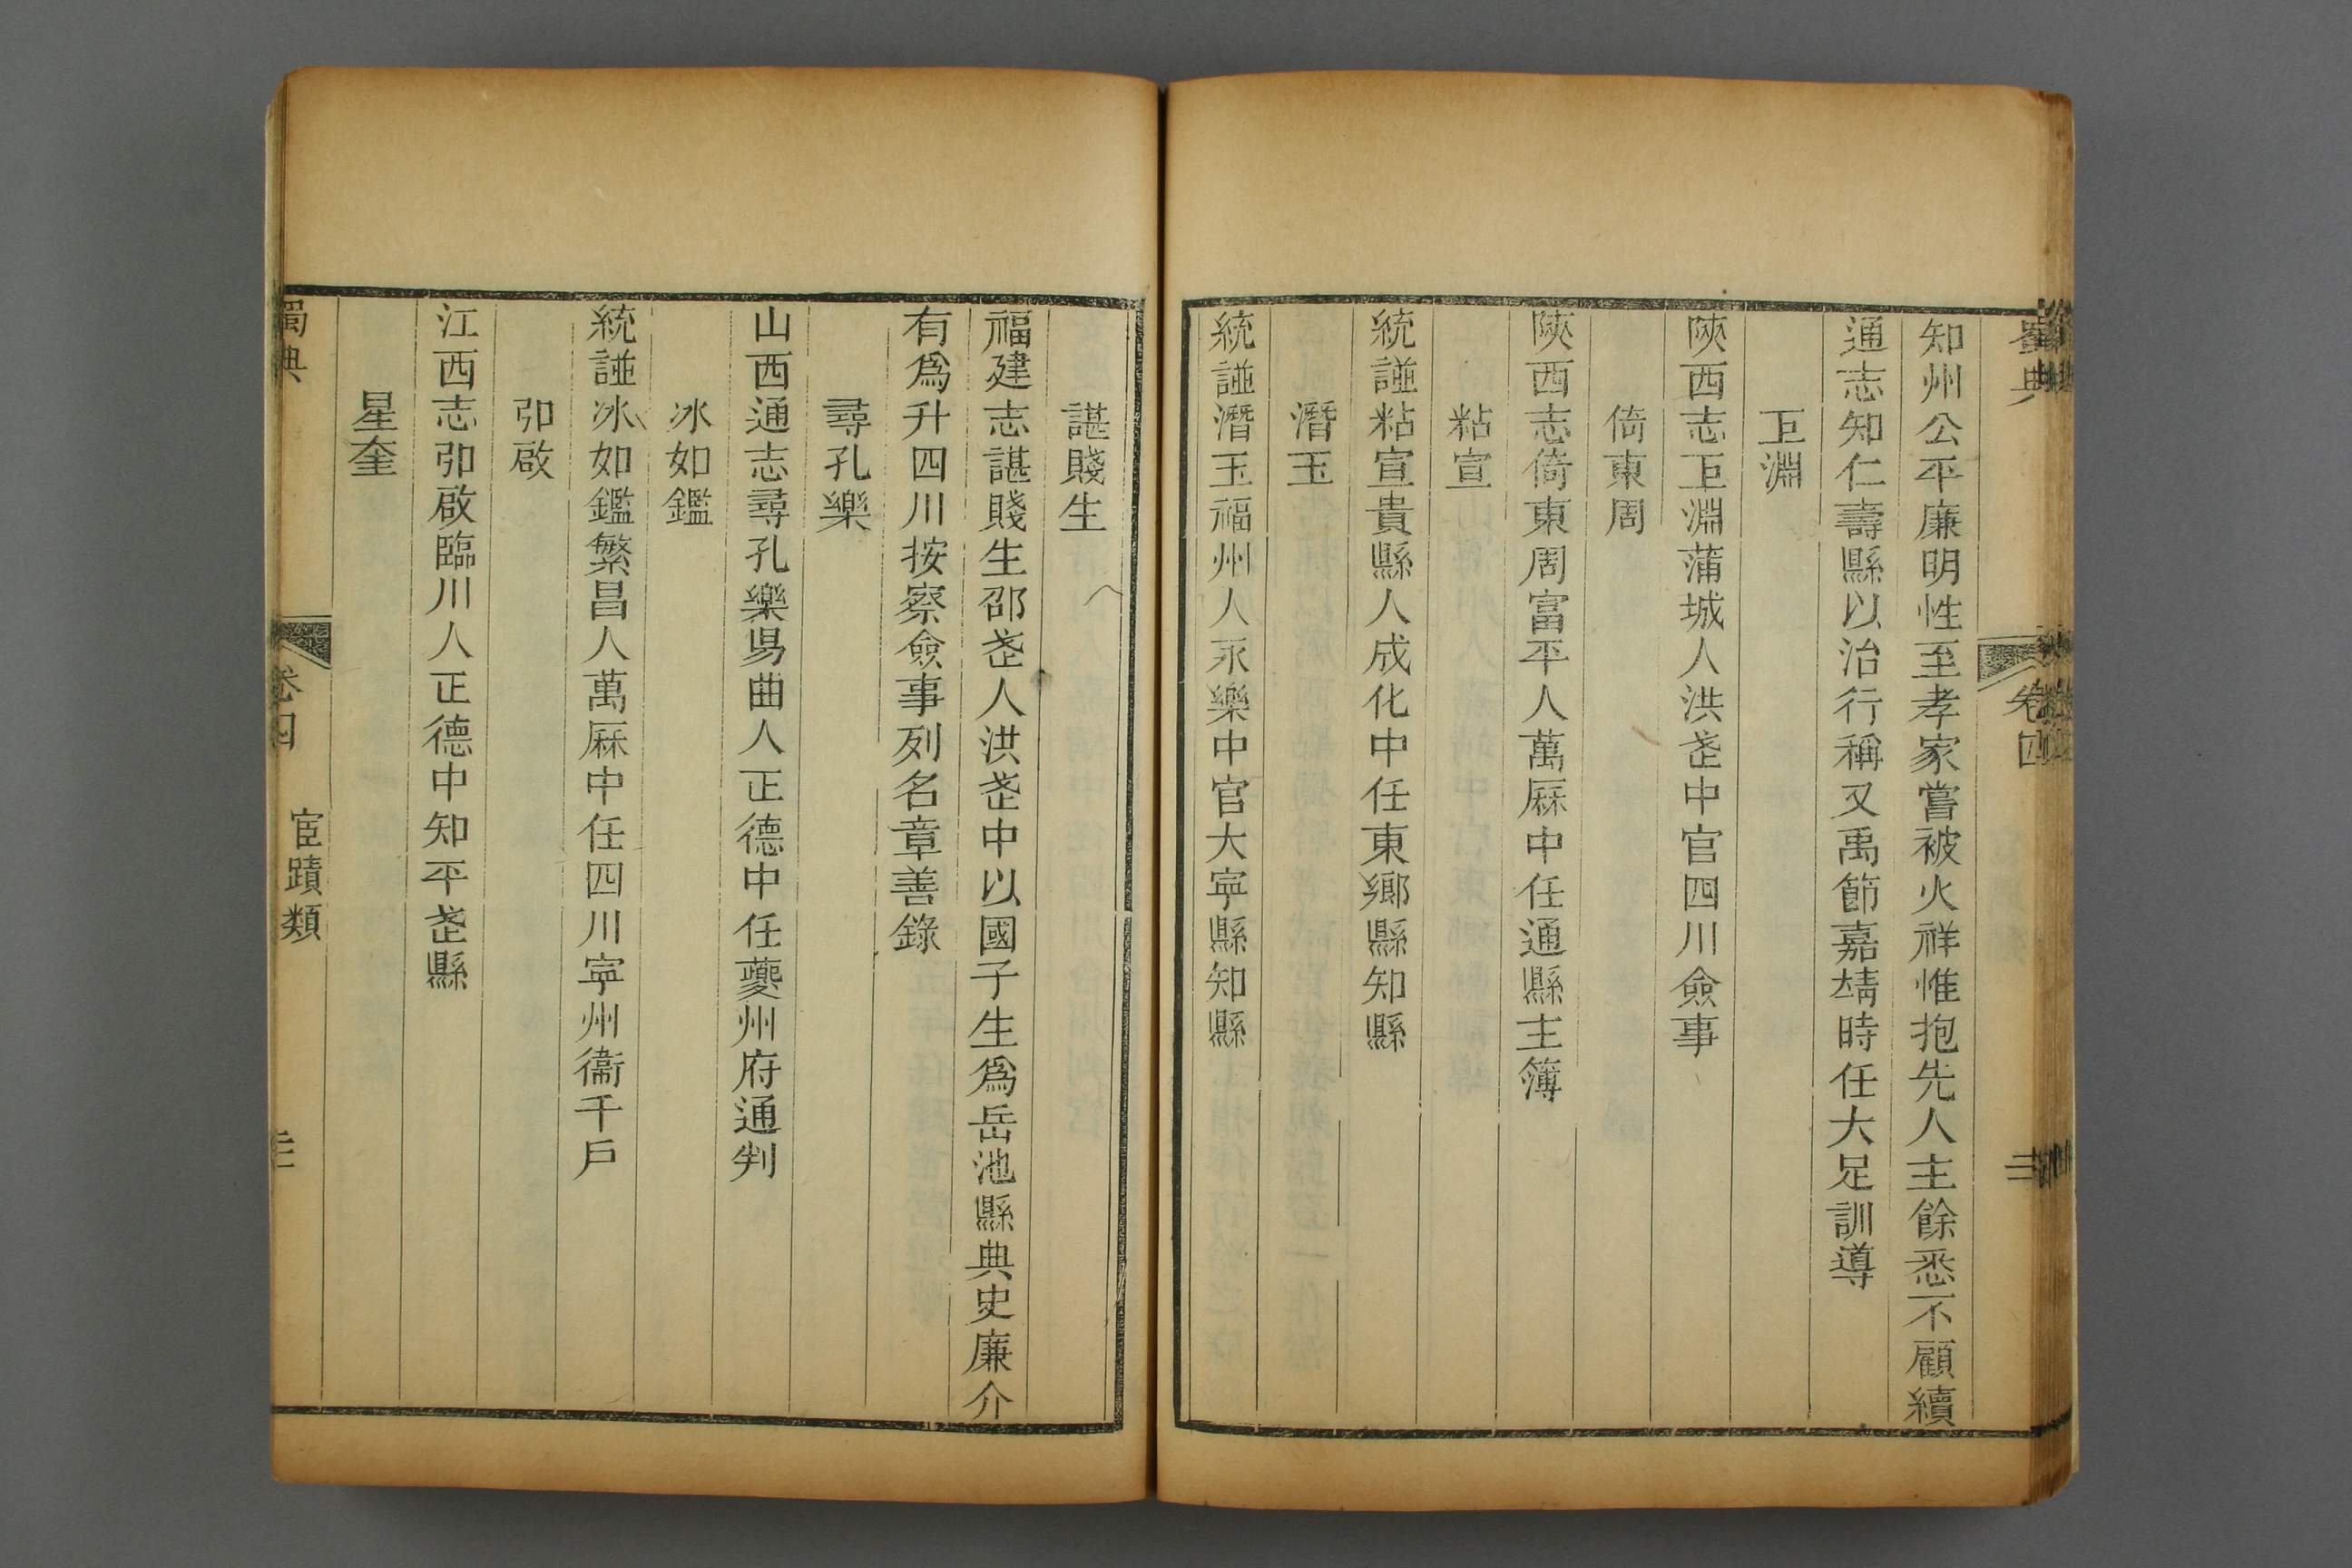 蜀典
卷四
知州公平廉明性至孝家嘗被火祥惟抱先人主餘悉不顧續
通志知仁壽縣以治行稱又禹節嘉靖時任大足訓導
㠪淵
陝西志㠪淵蒲城人洪武中官四川僉事
倚東周
陝西志倚東周富平人萬厤中任通縣主簿
粘宣
統諩粘宣貴縣人成化中任東鄉縣知縣
潛玉
統諩潛玉福州人永樂中官大寧縣知縣
諶賤生
福建志諶賤生邵武人洪武中以國子生爲岳池縣典史廉介
有爲升四川按察僉事列名章善錄
尋孔樂
山西通志尋孔樂昜曲人正德中任夔州府通判
冰如鑑
統諩冰如鑑繁昌人萬厤中任四川寧州衞千戶
卭啟
江西志卭啟臨川人正德中知平武縣
星奎
蜀典
卷四
宦蹟類